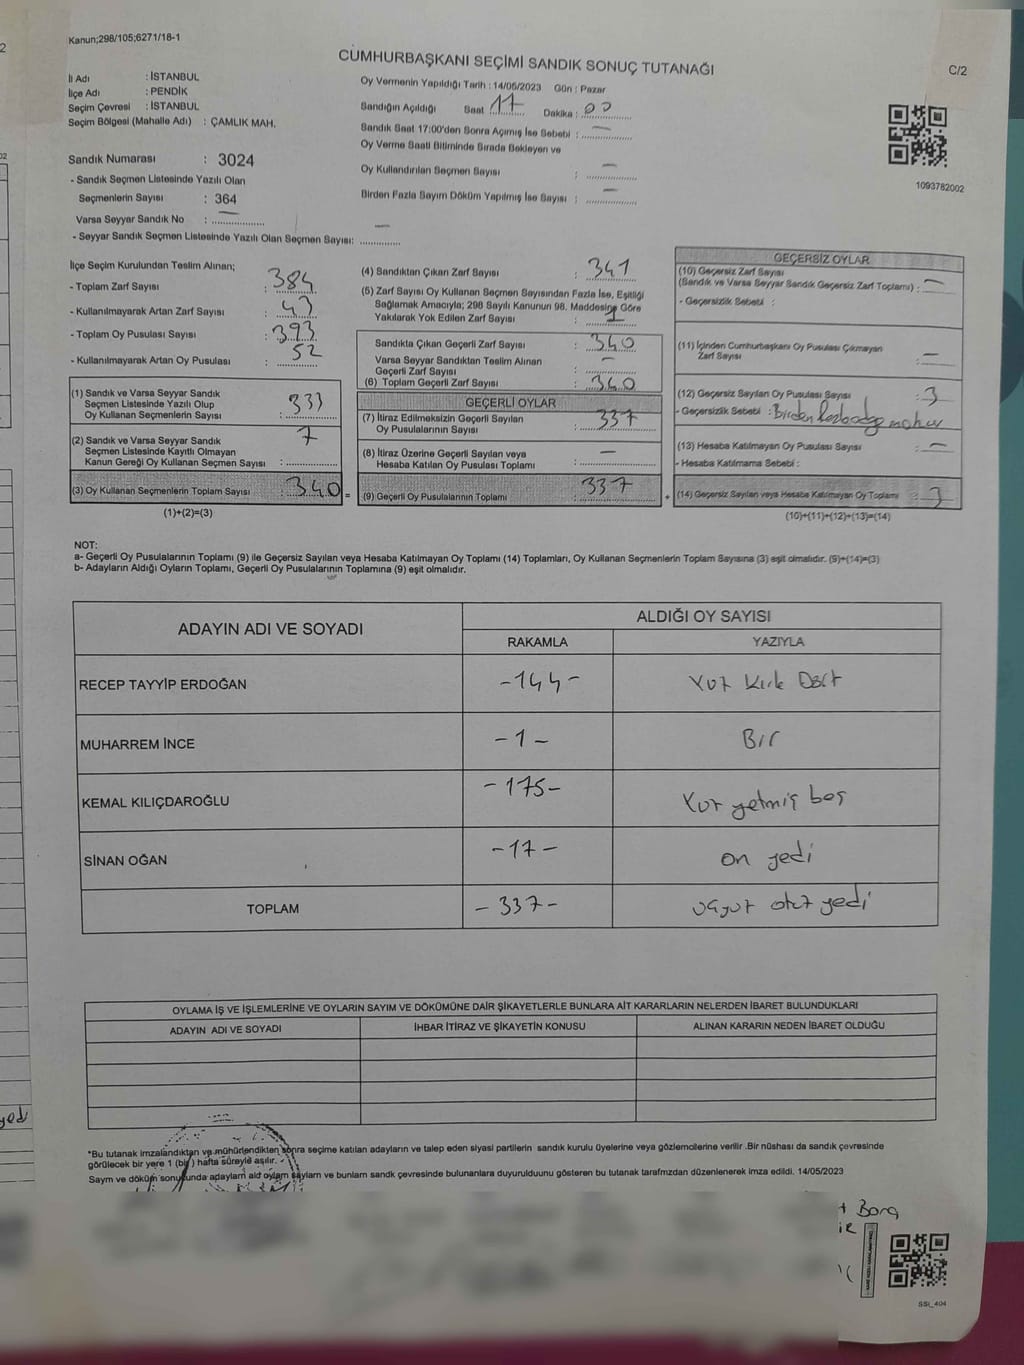 Kanun;298/105;6271/18-1
CUMHURBAŞKANI SEÇİMİ SANDIK SONUÇ TUTANAĞI
C/2
İl Adı : İSTANBUL
İlçe Adı : PENDİK
Seçim Çevresi : İSTANBUL
Seçim Bölgesi (Mahalle Adı) : ÇAMLIK MAH.
Sandık Numarası : 3024
- Sandık Seçmen Listesinde Yazılı Olan
Seçmenlerin Sayısı : 364
Varsa Seyyar Sandık No : —
- Seyyar Sandık Seçmen Listesinde Yazılı Olan Seçmen Sayısı: —
Oy Vermenin Yapıldığı Tarih : 14/05/2023 Gün : Pazar
Sandığın Açıldığı Saat 17 Dakika : 00
Sandık Saat 17:00'den Sonra Açılmış İse Sebebi : —
Oy Verme Saati Bitiminde Sırada Bekleyen ve
Oy Kullandırılan Seçmen Sayısı : —
Birden Fazla Sayım Döküm Yapılmış İse Sayısı : —
1093782002
İlçe Seçim Kurulundan Teslim Alınan;
- Toplam Zarf Sayısı : 384
- Kullanılmayarak Artan Zarf Sayısı : 43
- Toplam Oy Pusulası Sayısı : 393
- Kullanılmayarak Artan Oy Pusulası : 52
(1) Sandık ve Varsa Seyyar Sandık
Seçmen Listesinde Yazılı Olup
Oy Kullanan Seçmenlerin Sayısı : 333
(2) Sandık ve Varsa Seyyar Sandık
Seçmen Listesinde Kayıtlı Olmayan
Kanun Gereği Oy Kullanan Seçmen Sayısı : 7
(3) Oy Kullanan Seçmenlerin Toplam Sayısı : 340 =
(1)+(2)=(3)
(4) Sandıktan Çıkan Zarf Sayısı : 341
(5) Zarf Sayısı Oy Kullanan Seçmen Sayısından Fazla İse, Eşitliği
Sağlamak Amacıyla; 298 Sayılı Kanunun 98. Maddesine Göre
Yakılarak Yok Edilen Zarf Sayısı : 1
Sandıkta Çıkan Geçerli Zarf Sayısı : 340
Varsa Seyyar Sandıktan Teslim Alınan
Geçerli Zarf Sayısı : —
(6) Toplam Geçerli Zarf Sayısı : 340
GEÇERLİ OYLAR
(7) İtiraz Edilmeksizin Geçerli Sayılan
Oy Pusulalarının Sayısı : 337
(8) İtiraz Üzerine Geçerli Sayılan veya
Hesaba Katılan Oy Pusulası Toplamı : —
(9) Geçerli Oy Pusulalarının Toplamı : 337 +
GEÇERSİZ OYLAR
(10) Geçersiz Zarf Sayısı
(Sandık ve Varsa Seyyar Sandık Geçersiz Zarf Toplamı) : —
- Geçersizlik Sebebi :
(11) İçinden Cumhurbaşkanı Oy Pusulası Çıkmayan
Zarf Sayısı : —
(12) Geçersiz Sayılan Oy Pusulası Sayısı : 3
- Geçersizlik Sebebi : Birden
(13) Hesaba Katılmayan Oy Pusulası Sayısı : —
- Hesaba Katılmama Sebebi :
(14) Geçersiz Sayılan veya Hesaba Katılmayan Oy Toplamı : 3
(10)+(11)+(12)+(13)=(14)
NOT:
a- Geçerli Oy Pusulalarının Toplamı (9) ile Geçersiz Sayılan veya Hesaba Katılmayan Oy Toplamı (14) Toplamları, Oy Kullanan Seçmenlerin Toplam Sayısına (3) eşit olmalıdır. (9)+(14)=(3)
b- Adayların Aldığı Oyların Toplamı, Geçerli Oy Pusulalarının Toplamına (9) eşit olmalıdır.
ADAYIN ADI VE SOYADI
ALDIĞI OY SAYISI
RAKAMLA YAZIYLA
RECEP TAYYİP ERDOĞAN -144- Yüz Kırk Dört
MUHARREM İNCE -1- Bir
KEMAL KILIÇDAROĞLU -175- Yüz yetmiş beş
SİNAN OĞAN -17- on yedi
TOPLAM -337- üçyüz otuz yedi
OYLAMA İŞ VE İŞLEMLERİNE VE OYLARIN SAYIM VE DÖKÜMÜNE DAİR ŞİKAYETLERLE BUNLARA AİT KARARLARIN NELERDEN İBARET BULUNDUKLARI
ADAYIN ADI VE SOYADI İHBAR İTİRAZ VE ŞİKAYETİN KONUSU ALINAN KARARIN NEDEN İBARET OLDUĞU
*Bu tutanak imzalandıktan ve mühürlendikten sonra seçime katılan adayların ve talep eden siyasi partilerin sandık kurulu üyelerine veya gözlemcilerine verilir .Bir nüshası da sandık çevresinde
görülecek bir yere 1 (bir) hafta süreyle asılır.
Sayım ve döküm sonucunda adayların aldı oyların sayıları ve bunların sandk çevresinde bulunanlara duyurulduunu gösteren bu tutanak tarafmzdan düzenlenerek imza edildi. 14/05/2023
SSI_404